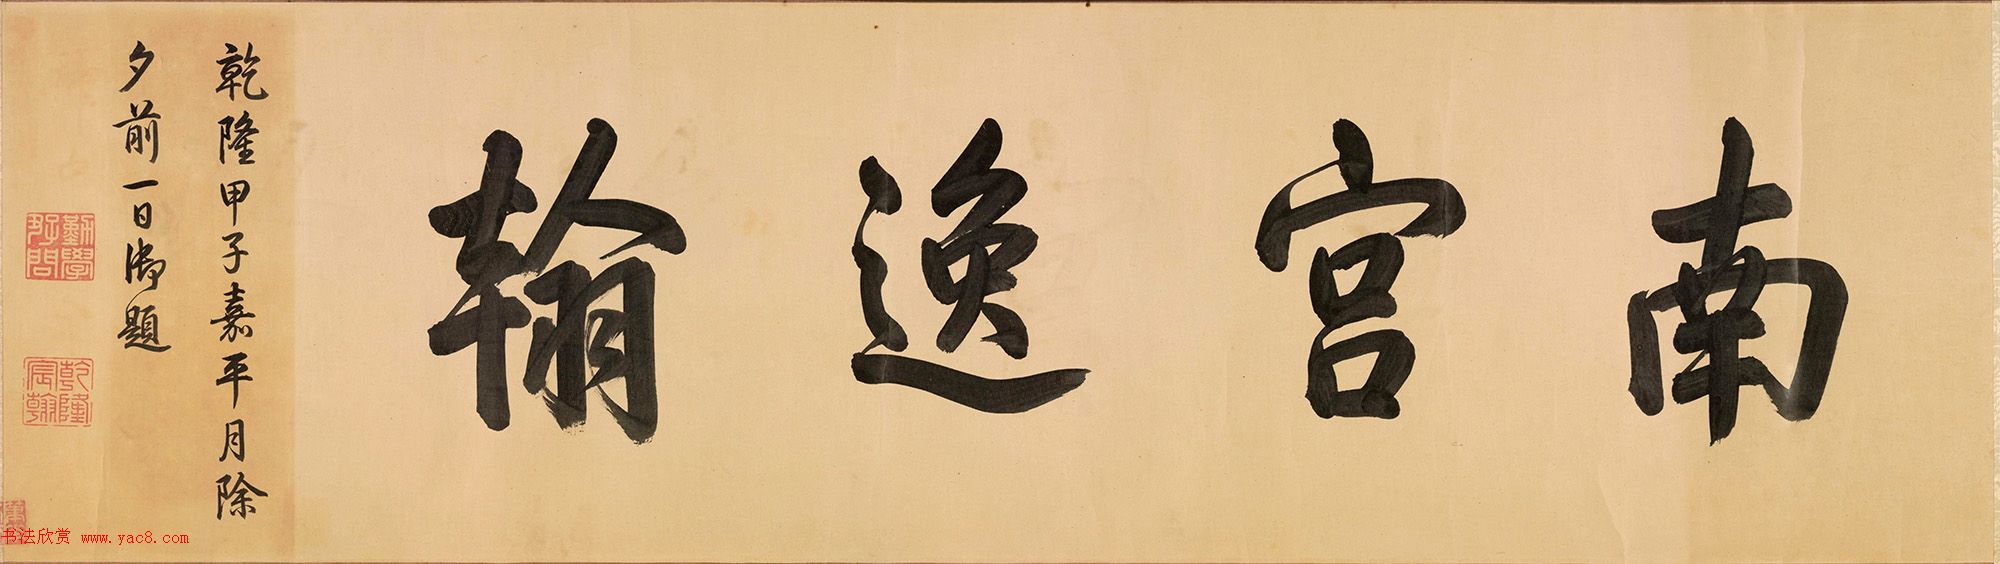 南宫逸翰
乾隆甲子嘉平月除
夕前一日御題
勤學好問
乾隆宸翰
书法欣赏 www.yac8.com